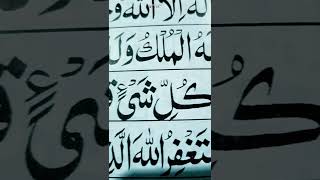 لٰهَ اِلَّا اللهُ وَ
لَهُ الْمُلْكُ وَلَ
كُلِّ شَیْءٍ
تَغْفِرُ اللهَ الَّذِ